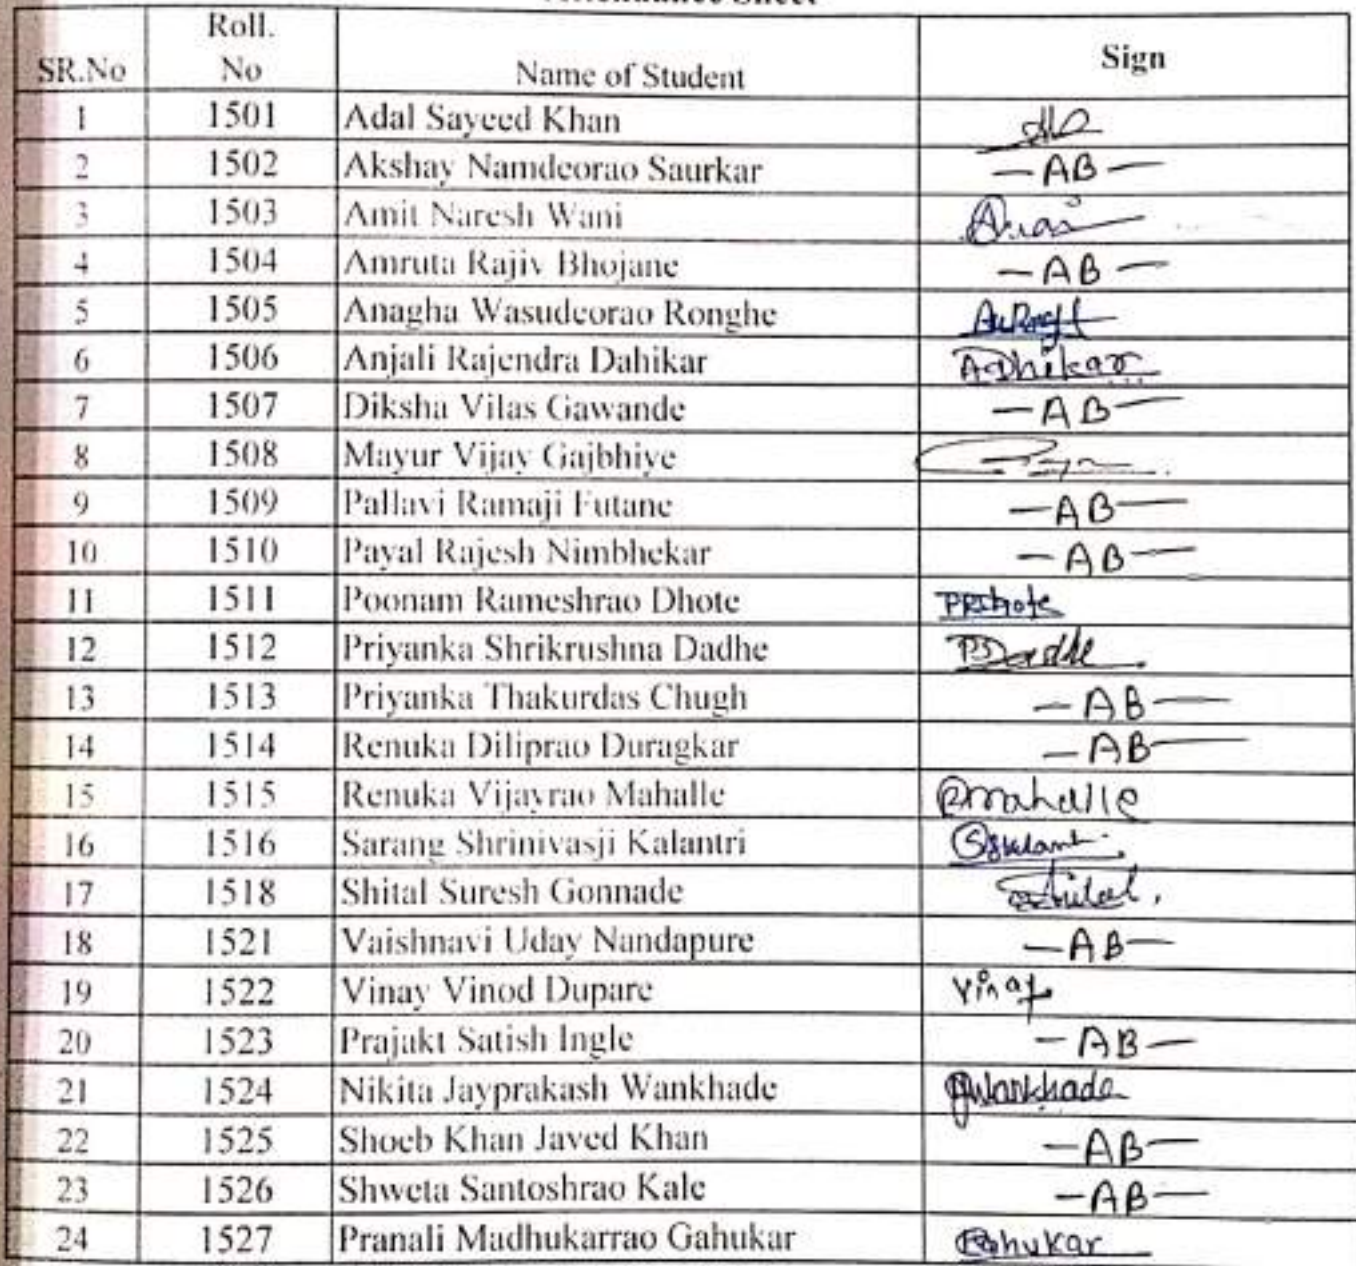 Attendance Sheet
SR.No Roll. No Name of Student Sign
1 1501 Adal Sayeed Khan
2 1502 Akshay Namdeorao Saurkar —AB—
3 1503 Amit Naresh Wani
4 1504 Amruta Rajiv Bhojane —AB—
5 1505 Anagha Wasudeorao Ronghe
6 1506 Anjali Rajendra Dahikar ADhikar
7 1507 Diksha Vilas Gawande —AB—
8 1508 Mayur Vijay Gajbhiye
9 1509 Pallavi Ramaji Futane —AB—
10 1510 Payal Rajesh Nimbhekar —AB—
11 1511 Poonam Rameshrao Dhote PRDhote
12 1512 Priyanka Shrikrushna Dadhe PSDadhe
13 1513 Priyanka Thakurdas Chugh —AB—
14 1514 Renuka Diliprao Duragkar —AB—
15 1515 Renuka Vijayrao Mahalle Rmahalle
16 1516 Sarang Shrinivasji Kalantri
17 1518 Shital Suresh Gonnade
18 1521 Vaishnavi Uday Nandapure —AB—
19 1522 Vinay Vinod Dupare Vinay
20 1523 Prajakt Satish Ingle —AB—
21 1524 Nikita Jayprakash Wankhade
22 1525 Shoeb Khan Javed Khan —AB—
23 1526 Shweta Santoshrao Kale —AB—
24 1527 Pranali Madhukarrao Gahukar